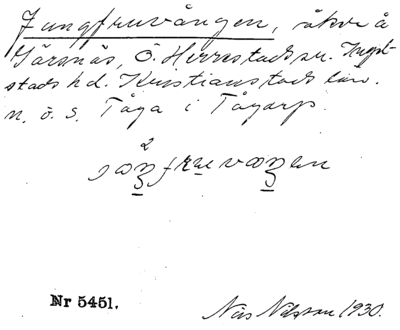 Jungfruvången, åker å
Gärsnäs, Ö. Herrestads sn. Ingel-
stads hd. Kristianstads län.
n. ö. s. Tåga i Tågarp.
Nr 5451.
Nils Nilsson 1930.